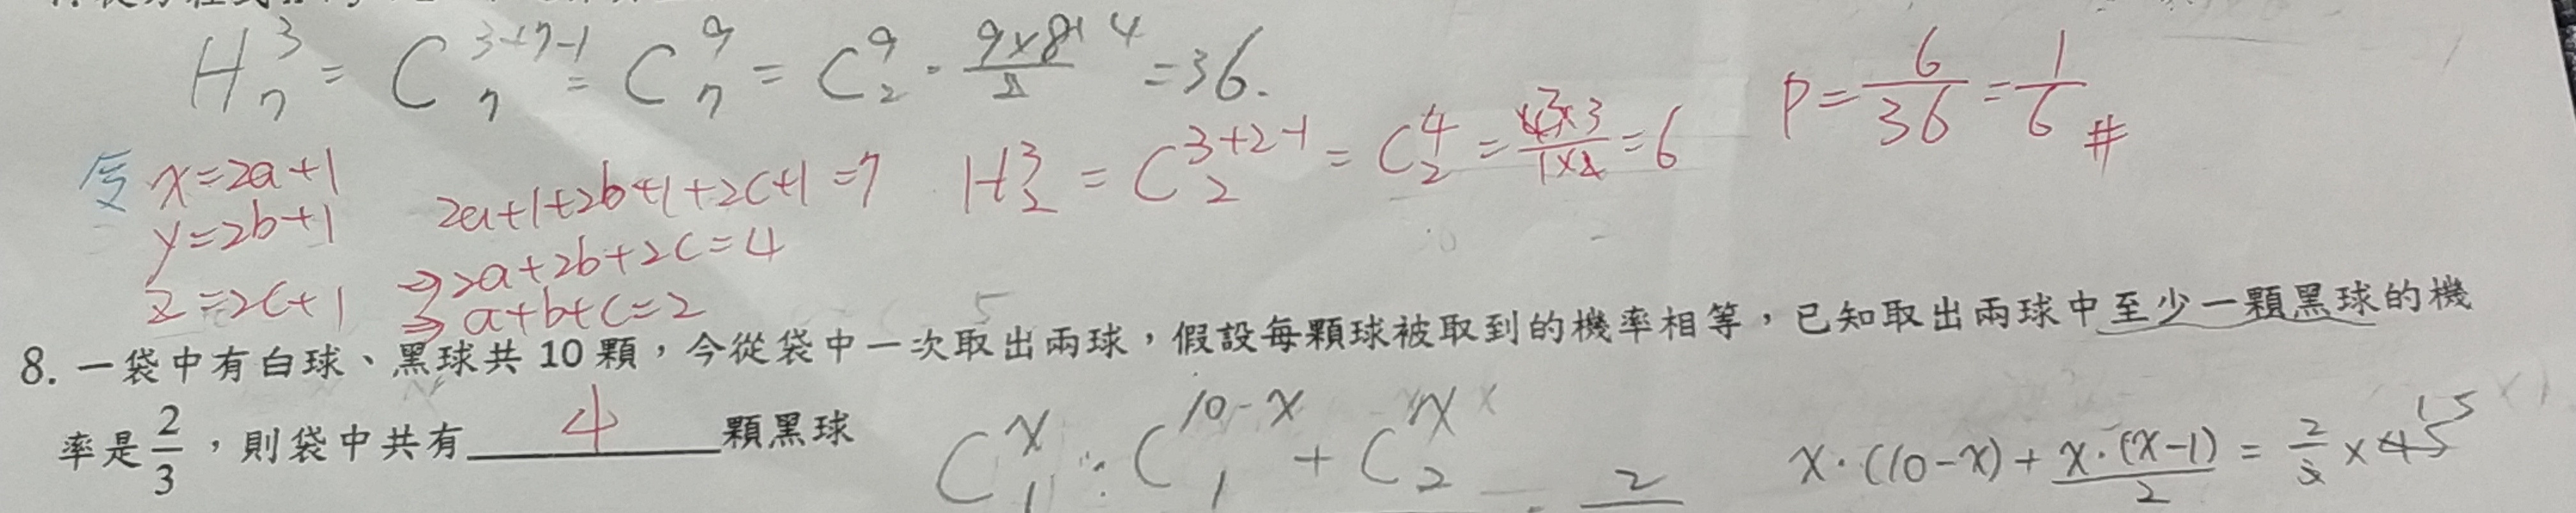 H³₇ = C³⁺⁷⁻¹₇ = C⁹₇ = C⁹₂ = 9×8/2 4 = 36.
P = 6/36 = 1/6 #
令 x=2a+1
y=2b+1
z=2c+1
2a+1+2b+1+2c+1=7
⇒2a+2b+2c=4
⇒a+b+c=2
H³₂ = C³⁺²⁻¹₂ = C⁴₂ = 4×3/1×2 = 6
8. 一袋中有白球、黑球共 10 顆，今從袋中一次取出兩球，假設每顆球被取到的機率相等，已知取出兩球中至少一顆黑球的機
率是 2/3，則袋中共有 4 顆黑球
Cˣ₁ · C¹⁰⁻ˣ₁ + Cˣ₂ = 2
x·(10-x) + x·(x-1)/2 = 2/3 × 45 15